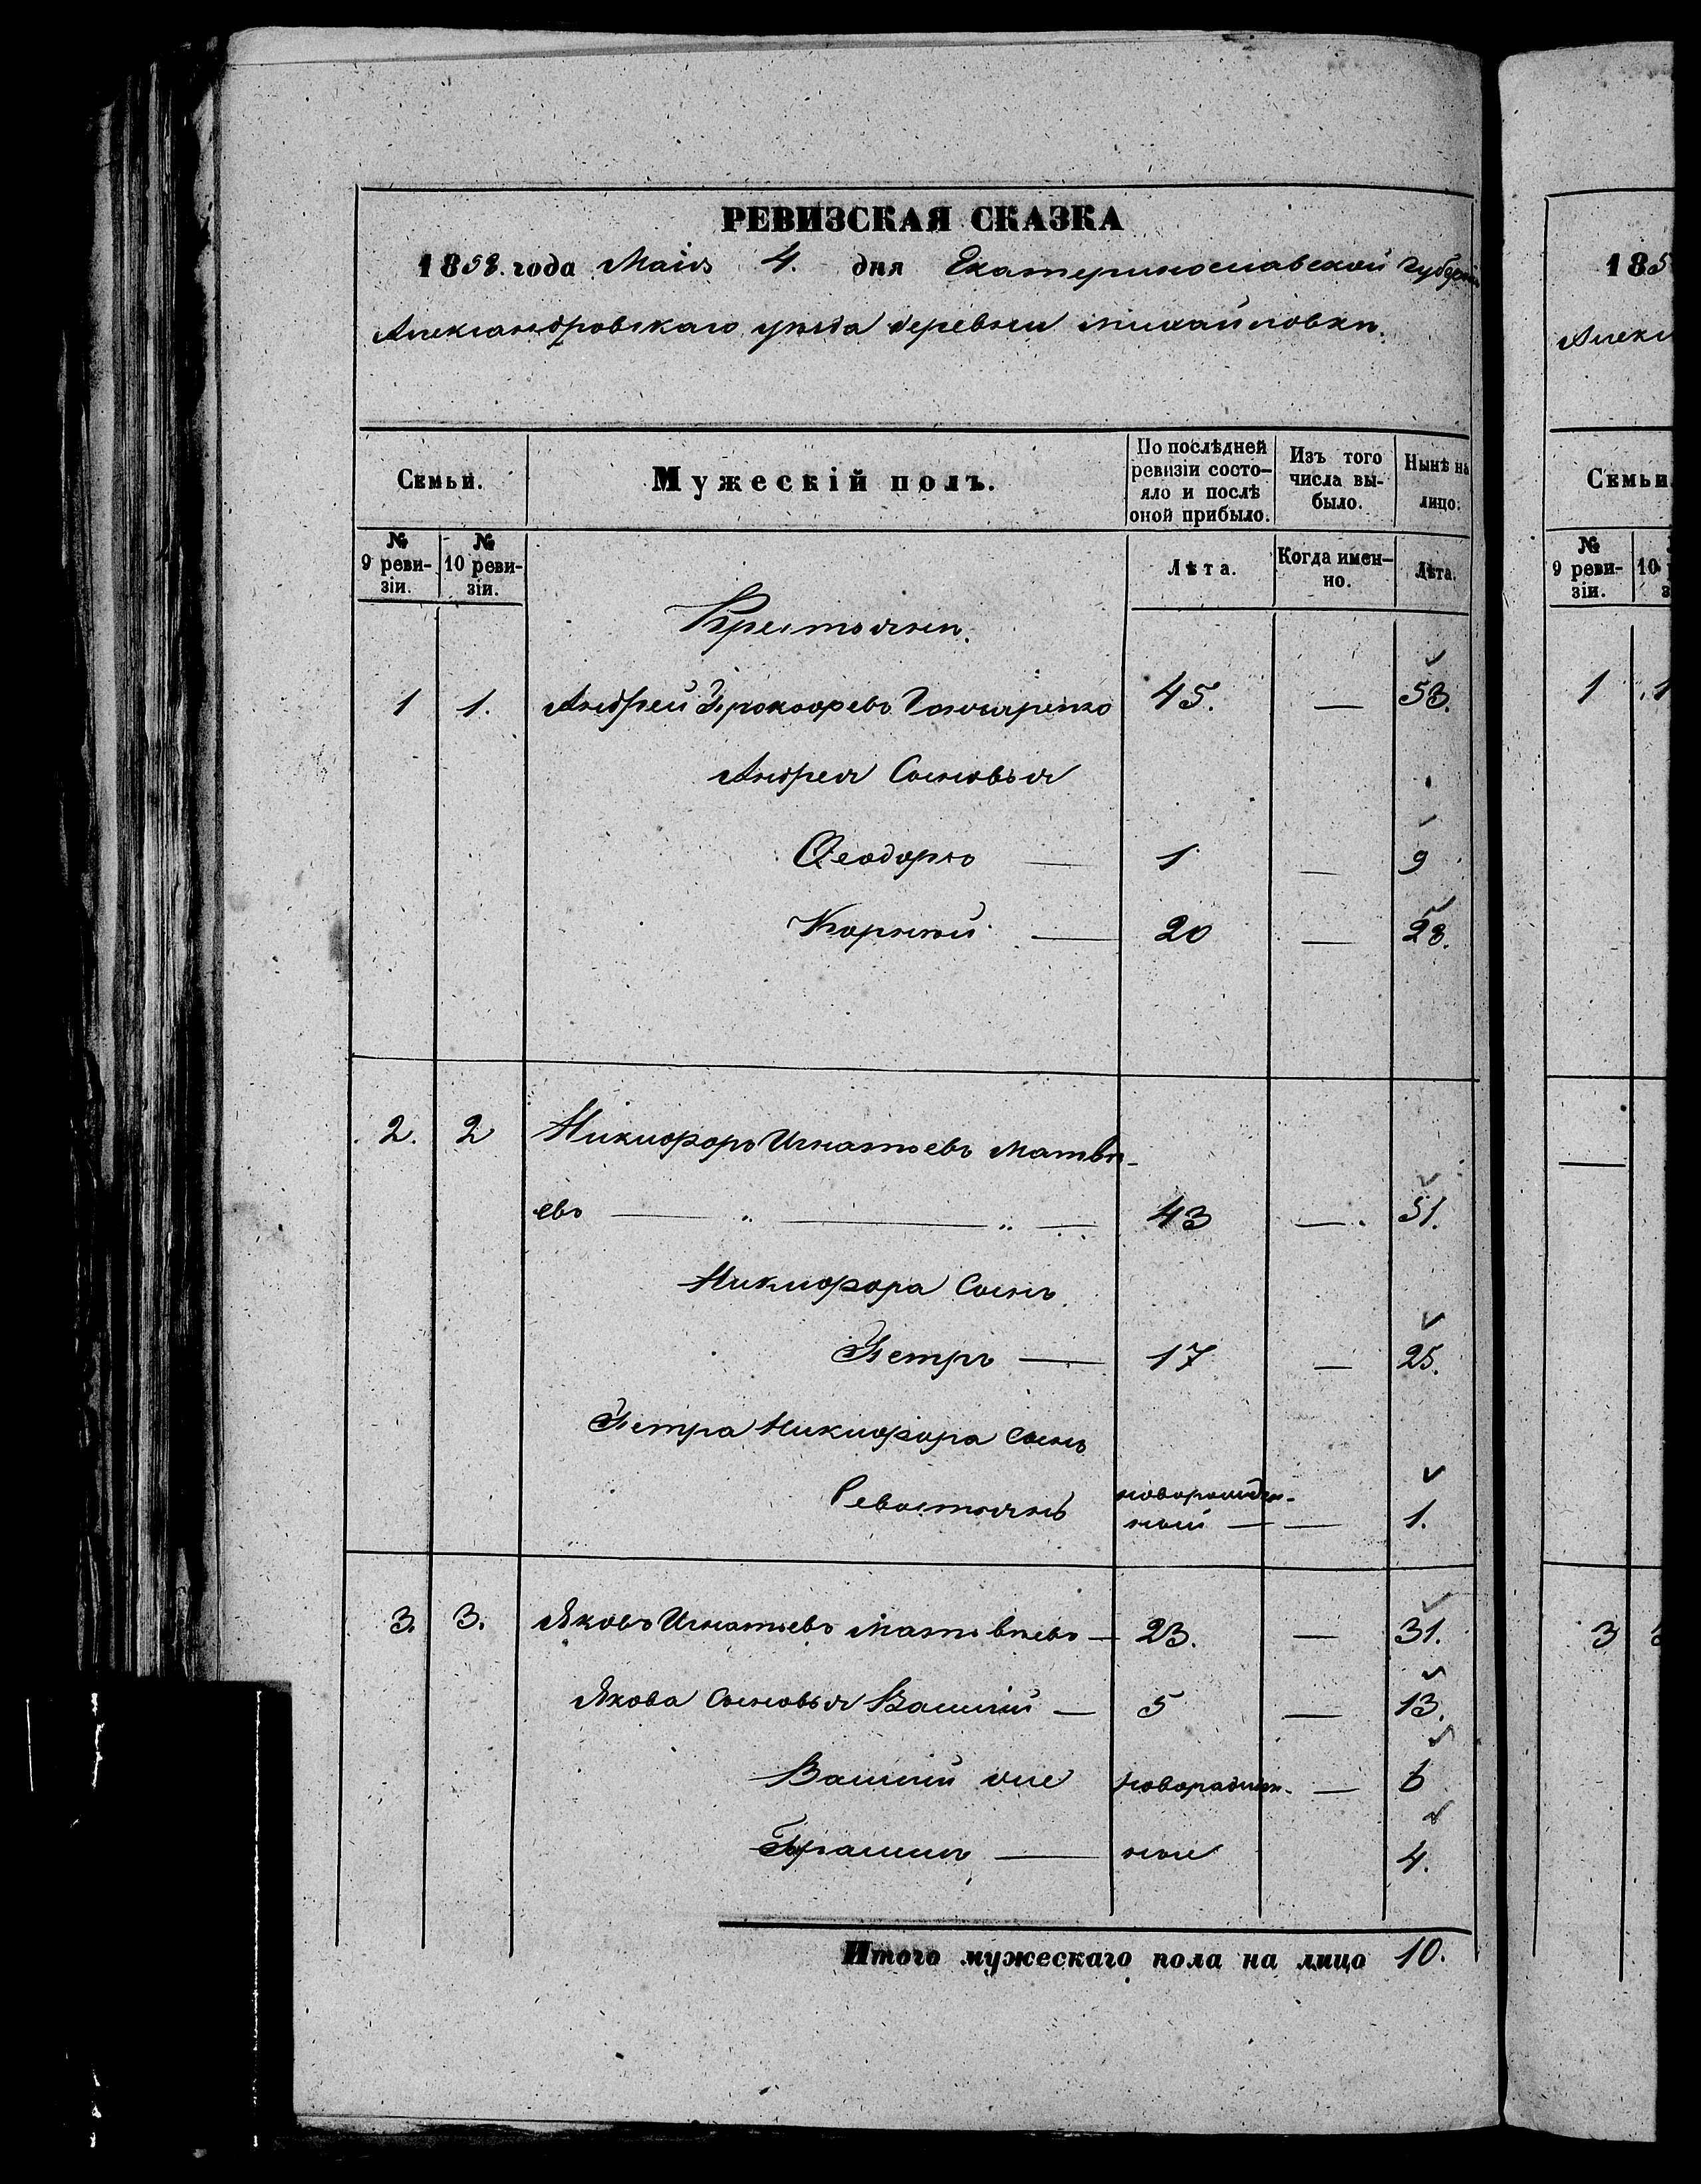 РЕВИЗСКАЯ СКАЗКА
1858. года Маія 4. дня Екатеринославской Губерніи
Александровскаго уѣзда деревни михайловки.
Семьи.
Мужескій полъ.
По послѣдней ревизіи состояло и послѣ оной прибыло.
Изъ того числа выбыло.
Нынѣ на лицо.
№ 9 ревизіи.
№ 10 ревизіи.
Лѣта.
Когда именно.
Лѣта.
Крестьяне.
1 1. Андрей Прокофьевъ Гончаренко 45. — 53.
Андрея Сыновья
Ѳеодоръ — 1 — 9
Корнѣй — 20 — 28.
2. 2 Никифоръ Игнатьевъ Матвѣ-
евъ — „ — „ — 43 — 51.
Никифора Сынъ
Петръ — 17 — 25.
Петра Никифора сынъ
Севостьянъ новорожден-
ный — — 1.
3. 3. Яковъ Игнатьевъ Матвѣевъ — 23. — 31.
Якова Сыновья Василій — 5 — 13.
Василій оне новорожден- — 6
Герасимъ — ные 4.
Итого мужескаго пола на лицо 10.
185
Алекс
Семьи
№ 9 ревизіи.
10
1 1
3